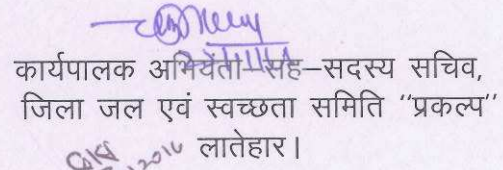 कार्यपालक अभियंता–सह–सदस्य सचिव,
जिला जल एवं स्वच्छता समिति "प्रकल्प"
लातेहार।